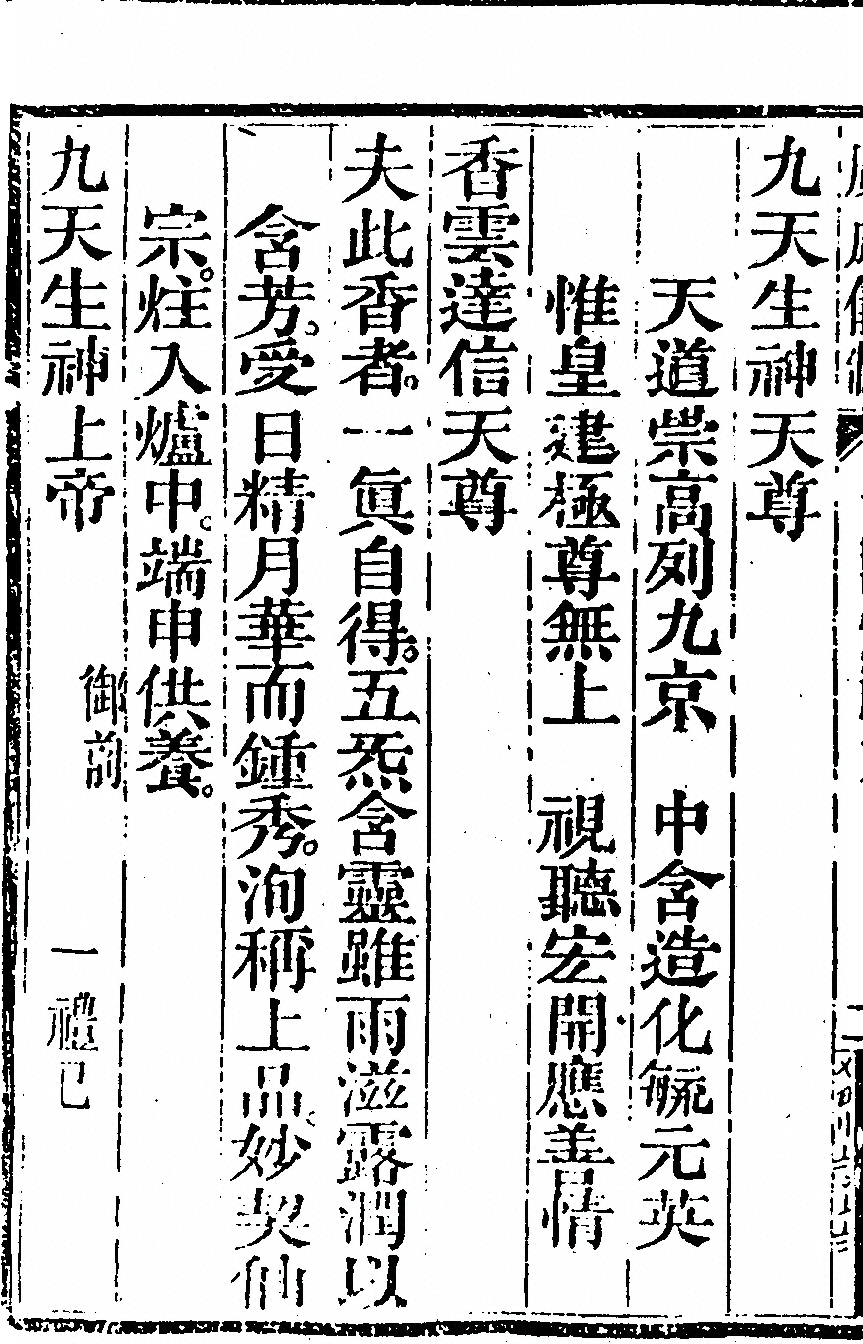 九天生神天尊
天道崇高列九京　中含造化毓元英
惟皇建極尊無上　視聽宏開應善情
香雲達信天尊
夫此香者。一眞自得。五炁含靈雖雨滋露潤以
含芳。受日精月華而鍾秀。洵稱上品。妙契仙
宗。炷入爐中。端申供養。
九天生神上帝　御前　一禮已